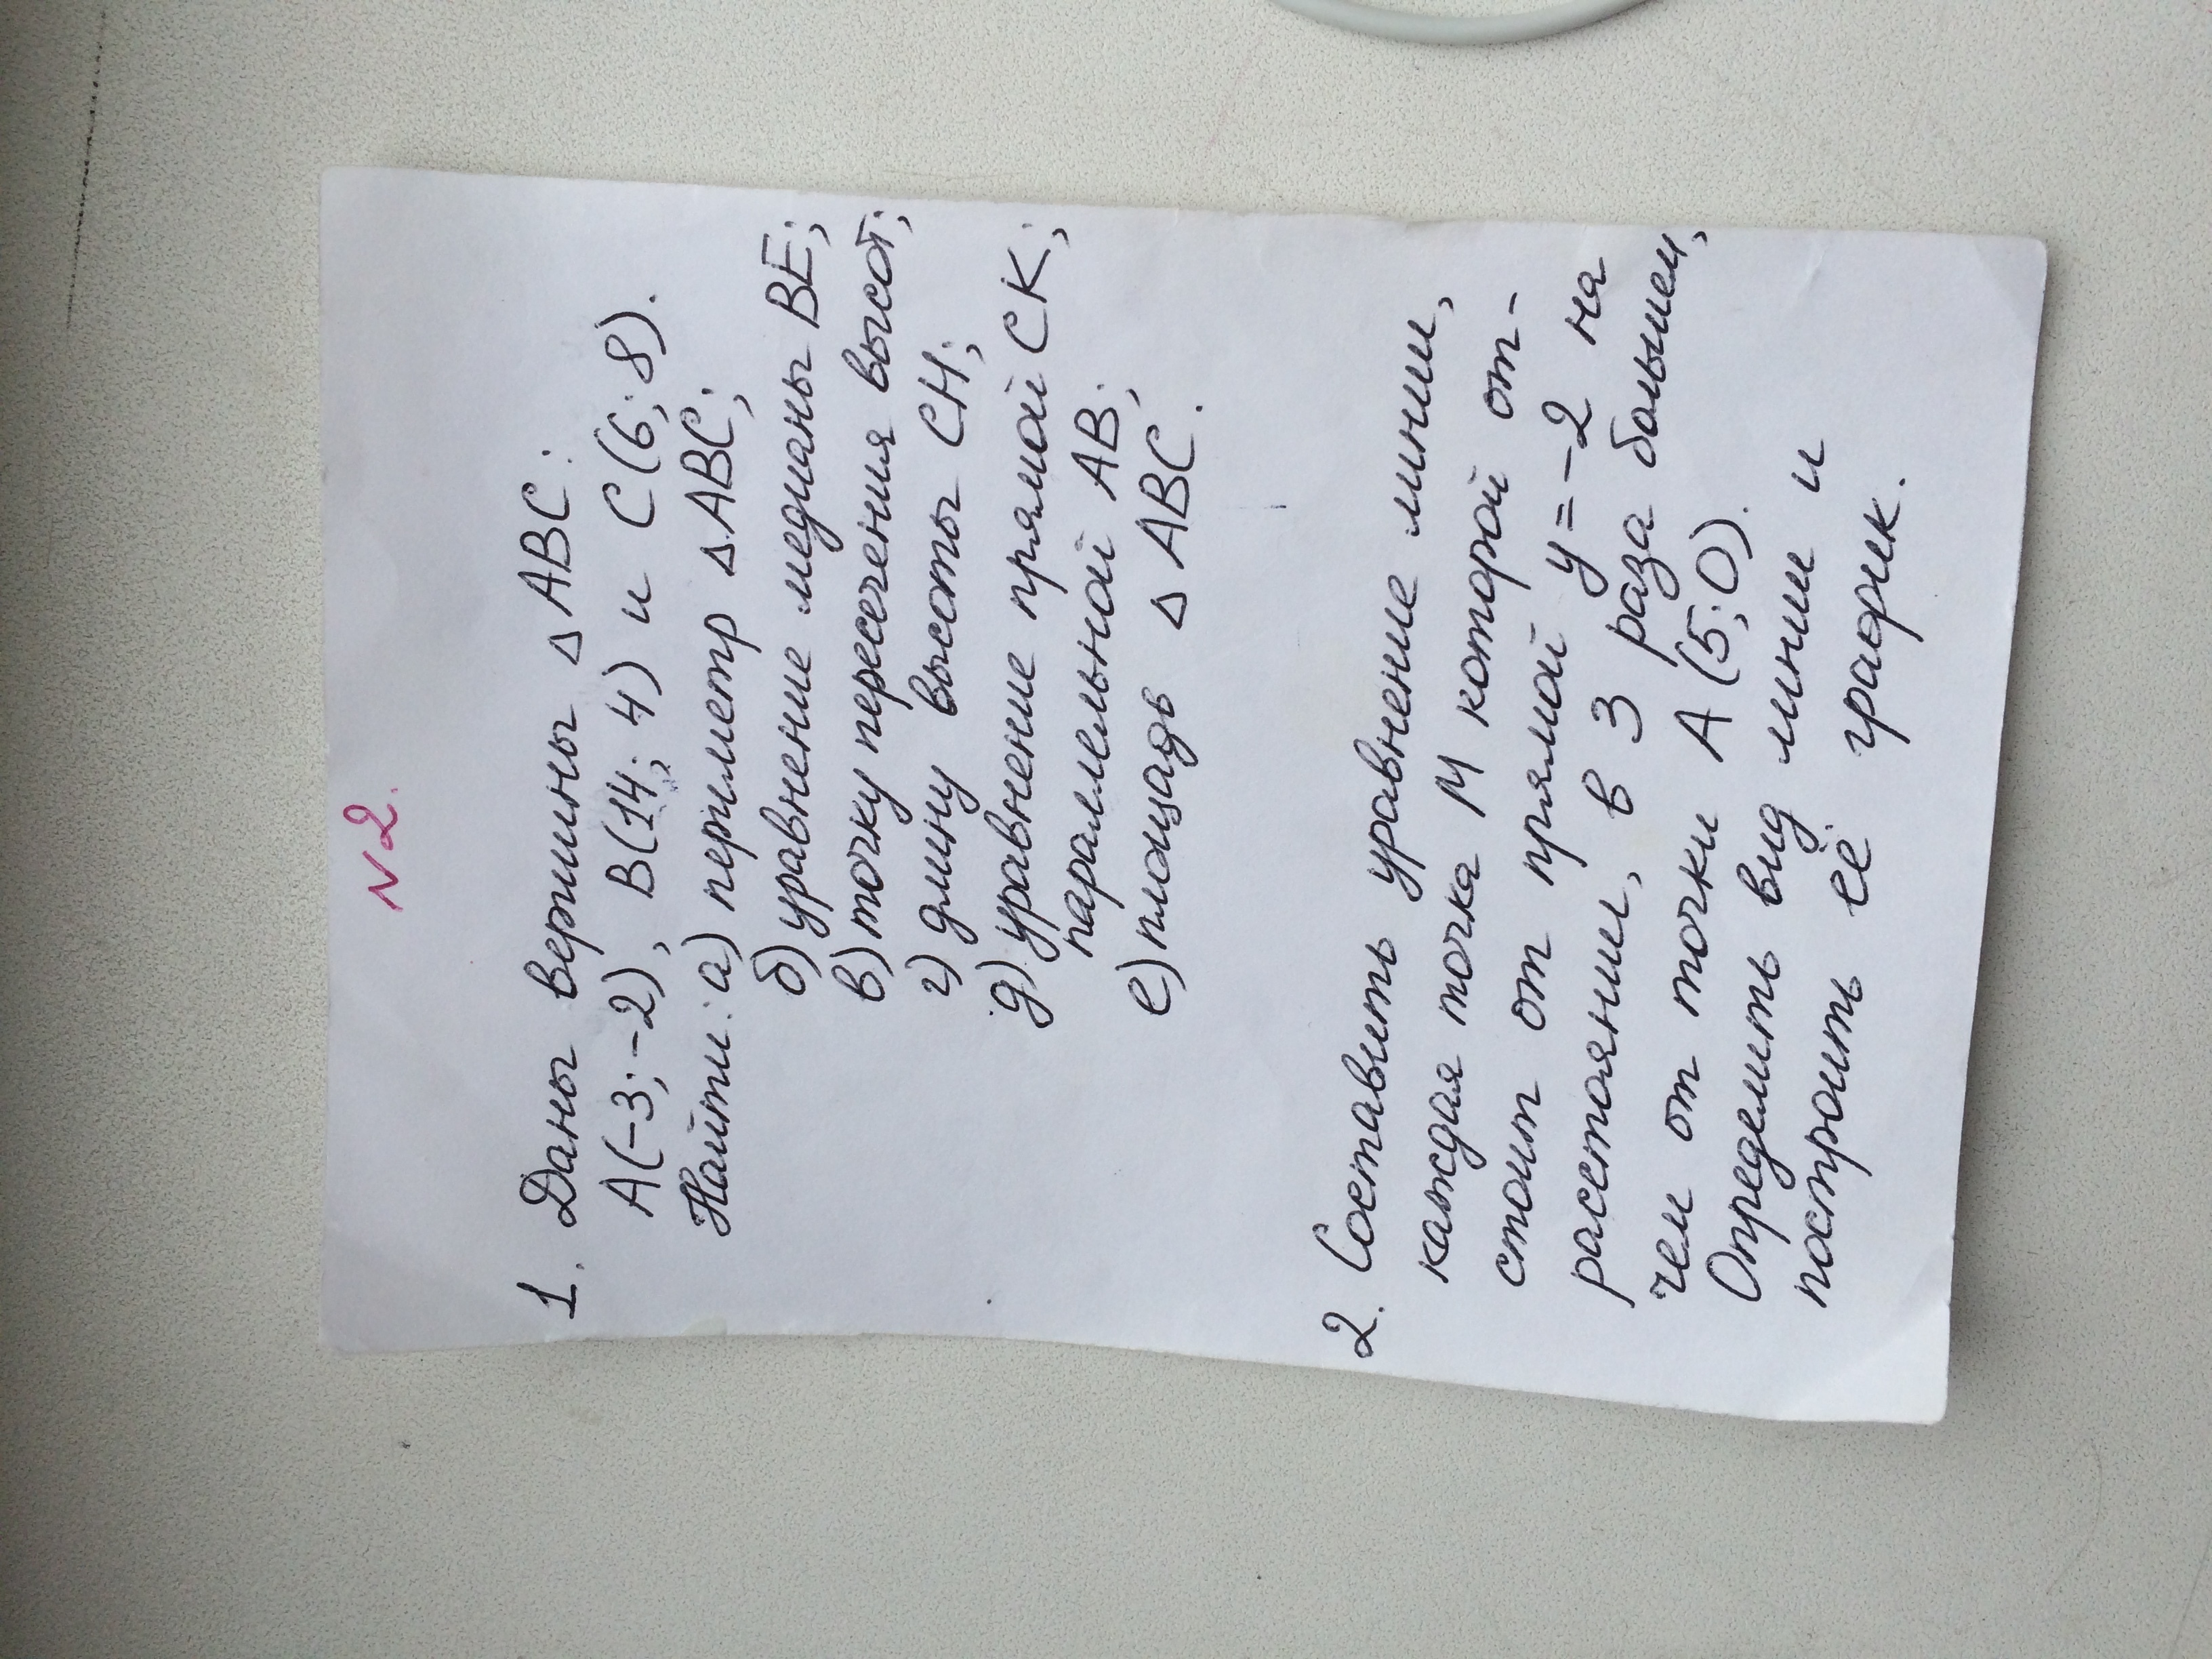 N2.
1. Даны вершины △ ABC:
A(-3; -2), B(14; 4) и C(6; 8).
Найти: а) периметр △ABC;
б) уравнение медианы BE;
в) точку пересечения высот;
г) длину высоты CH;
д) уравнение прямой CK,
параллельной AB;
е) площадь △ ABC.
2. Составить уравнение линии,
каждая точка M которой от-
стоит от прямой y=-2 на
расстоянии, в 3 раза большем,
чем от точки A (5; 0).
Определить вид линии и
построить её график.